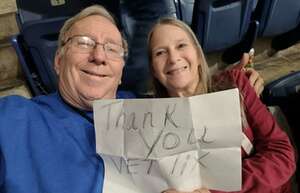 Thank
you
VET TIX